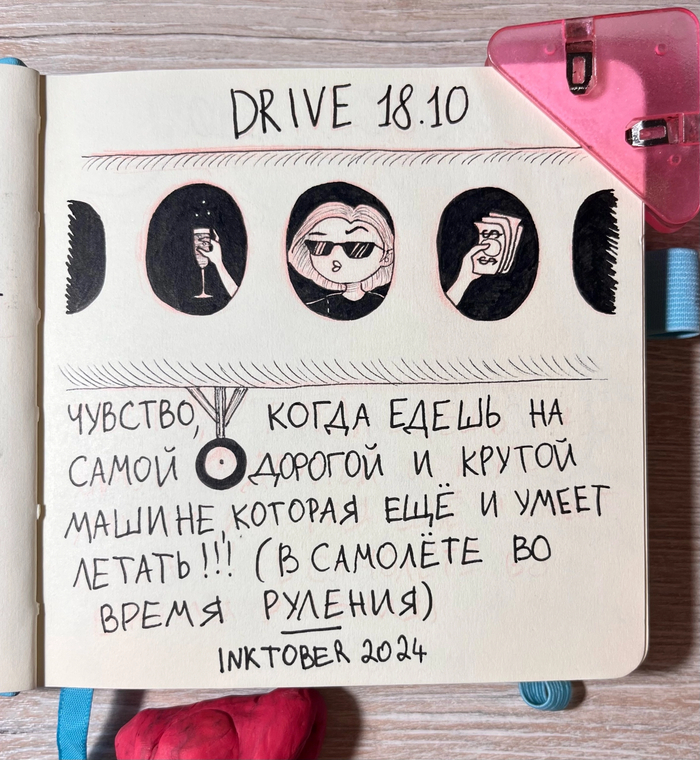 DRIVE 18.10
ЧУВСТВО, КОГДА ЕДЕШЬ НА
САМОЙ ДОРОГОЙ И КРУТОЙ
МАШИНЕ, КОТОРАЯ ЕЩЁ И УМЕЕТ
ЛЕТАТЬ!!! (В САМОЛЁТЕ ВО
ВРЕМЯ РУЛЕНИЯ)
INKTOBER 2024